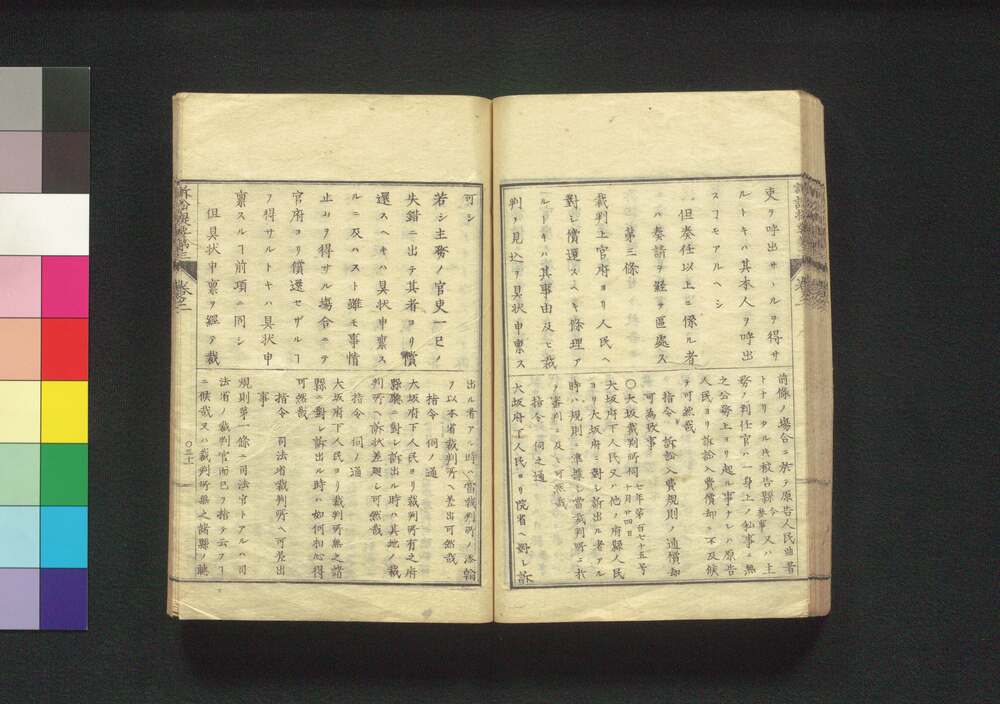 吏ヲ呼出サヽルヲ得サ
ルトキハ其本人ヲ呼出
スヿモアルヘシ
但奏任以上ニ係ル者
ハ奏請ヲ經テ區處ス
第三條
裁判上官府ヨリ人民ヘ
對シ償還スヘキ條理ア
ルトキハ其事由及ヒ裁
判ノ見込ヲ具状申禀ス
前條ノ場合ニ於テ原告人民曲者
トナリタル片被告縣令參事又ハ主
務ノ判任官ハ一身上ノ私事ニ無
之公務上ヨリ起ル事ナレハ原告
人民ヨリ訴訟入費償却ニ不及候
テ可然哉
指令 訴訟入費規則ノ通償却
可為致事
〇大坂裁判所伺 七年第百七十五号 十月廿四日
大坂府下人民又ハ他ノ府縣人民
ヨリ大坂府ニ對シ訴出ル者アル
時ハ規則ニ準據シ當裁判所ニ於
テ審判ニ及シ可然哉
指令 伺之通
大坂府下人民ヨリ院省ヘ對シ訴
訴訟提要第三
卷之二
可シ
若シ主務ノ官吏一己ノ
失錯ニ出テ其者ヨリ償
還スヘキハ具状申禀ス
ルニ及ハスト雖モ事情
止ヲ得サル塲合ニテ
官府ヨリ償還セザルヿ
ヲ得サルトキハ具状申
禀スルヿ前項ニ同シ
但具状申禀ヲ經テ裁
出ル者アル時ハ當裁判所ノ添翰
ヲ以本省裁判所ヘ差出可然哉
指令 伺ノ通
大坂府下人民ヨリ裁判所有之府
縣廰ニ對シ訴出ル時ハ其地ノ裁
判所ヘ訴状差廻シ可然哉
指令 伺ノ通
大坂府下人民ヨリ裁判所無之諸
縣ニ對シ訴出ル時ハ如何相心得
可然哉
指令 司法省裁判所ヘ可差出
事
規則第一條ニ司法官トアルハ司
法省ノ裁判官而已ヲ指テ云フ
ニ候哉又ハ裁判所無之諸縣ノ聽
〇三十一